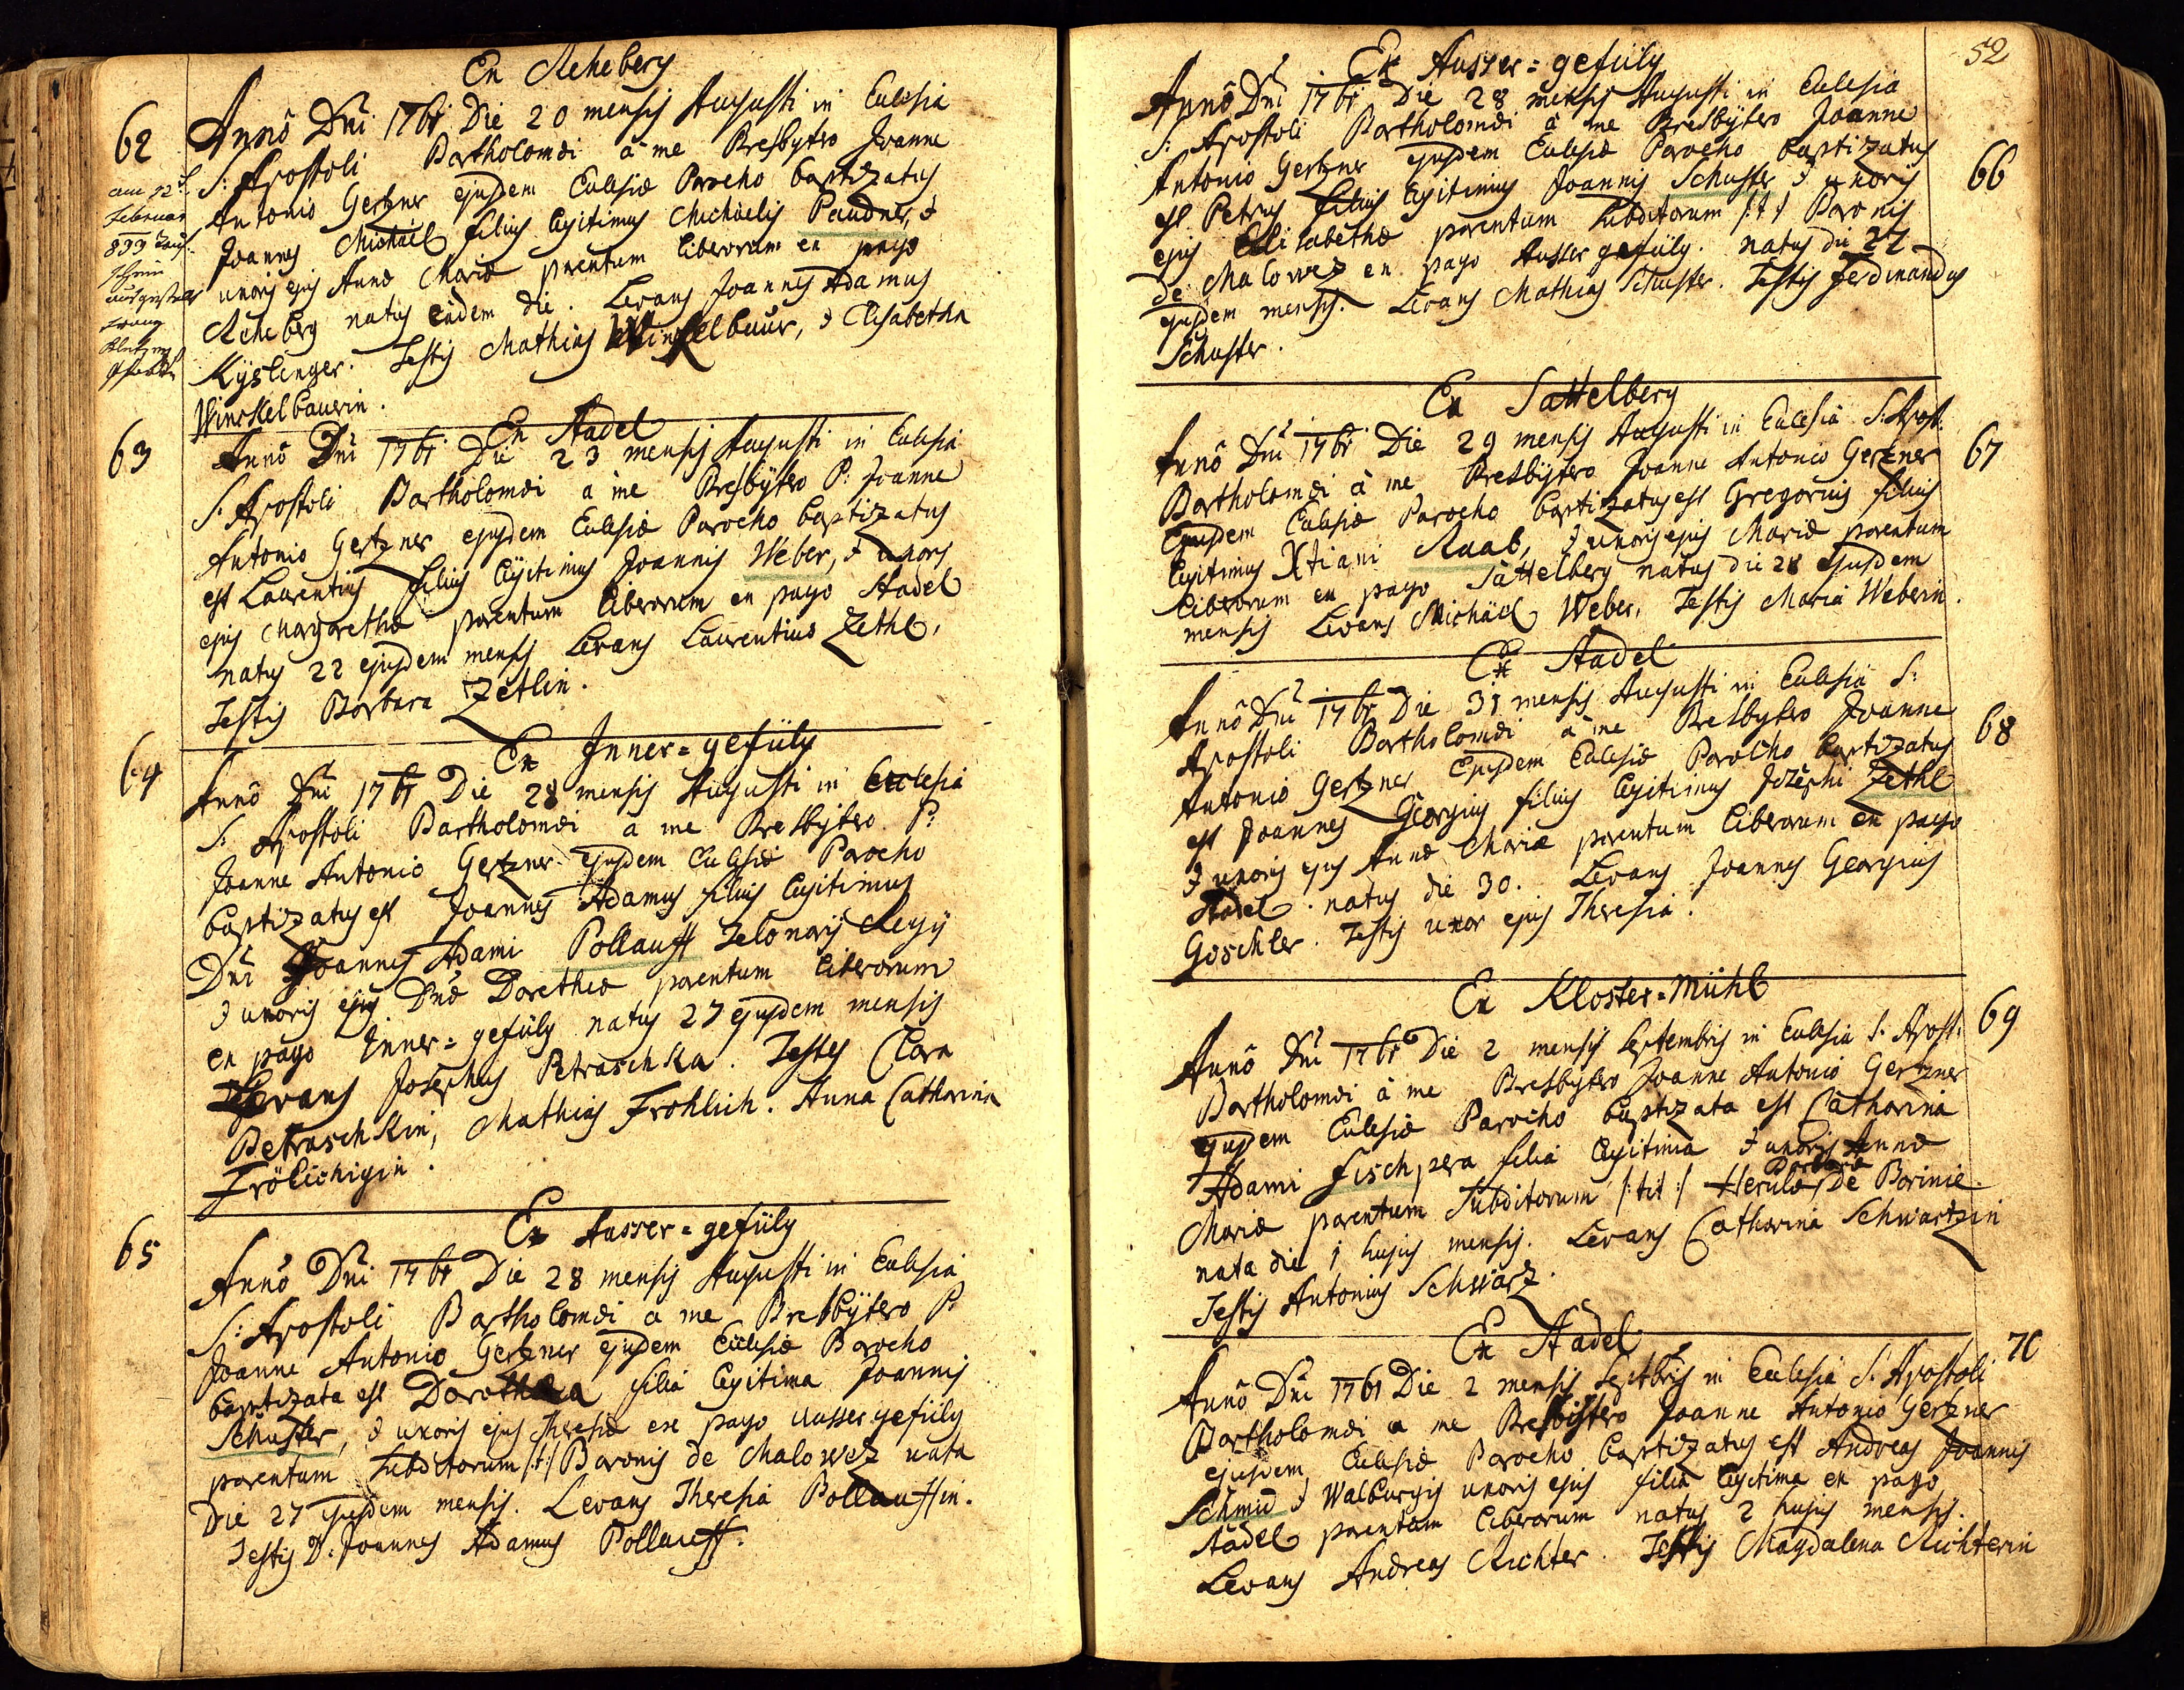 Ex Reheberg
62
Annô Dni 1761 Die 20 mensis Augusti in Ecclesia
S: Apostoli Bartholomæi à me Presbytero Joanne
Antonio Gertzner ejusdem Ecclesiæ Parocho baptizatus
Joannes Michäel filius legitimus Michäelis Paudner, &
uxoris ejus Annæ Mariæ parentum liberorum ex pago
Reheberg natus eâdem die. Levans Joannes Adamus
Kyslinger. Testis Mathias Winkelbaur, & Elisabetha
Winckelbaurin.
am 12t
Februar
899 Tauf-
schein
ausgestellt
63
Ex Stadel
Annô Dni 1761 Die 23 mensis Augusti in Ecclesia
S: Apostoli Bartholomæi a me Presbytero P: Joanne
Antonio Gertzner ejusdem Ecclesiæ Parocho baptizatus
est Laurentius filius legitimus Joannis Weber, & uxoris
ejus Margarethæ parentum liberorum ex pago Stadel
natus 22 ejusdem mensis Levans Laurentius Zethl,
Testis Barbara Zetlin.
64
Ex Inner=gefüly
Annô Dni 1761 Die 28 mensis Augusti in Ecclesia
S: Apostoli Bartholomæi a me Presbytero P:
Joanne Antonio Gertzner ejusdem Ecclesiæ Parocho
baptizatus est Joannes Adamus filius legitimus
Dni Joannis Adami Pollauff Telonarij Regij
& uxoris ejus Dnæ Dorotheæ parentum liberorum
ex pago Inner=gefüly natus 27 ejusdem mensis
Levans Josephus Petraschka. Testes Clara
Petraschkin, Mathias Frohlich. Anna Catharina
Frölichigin.
65
Ex Ausser=gefüly
Annô Dni 1761 Die 28 mensis Augusti in Ecclesia
S: Apostoli Bartholomæi a me Presbytero P:
Joanne Antonio Gertzner ejusdem Ecclesiæ Parocho
baptizata est Dorothea filia legitima Joannis
Schuster, & uxoris ejus Theresiæ ex pago Aussergefüly
parentum subditorum /:t:/ Baronis de Malowez nata
Die 27 ejusdem mensis. Levans Theresia Pollauffin.
Testis D: Joannes Adamus Pollauff.
52
Ex Ausser=gefüly
Annô Dni 1761 Die 28 mensis Augusti in Ecclesia
S: Apostoli Bartholomæi à me Presbytero Joanne
Antonio Gertzner ejusdem Ecclesiæ Parocho baptizatus
66
est Petrus filius legitimus Joannis Schuster & uxoris
ejus Elisabethæ parentum subditorum /:t:/ Baronis
de Malowez ex pago Aussergefüly. natus die 27
ejusdem mensis. Levans Mathias Schuster. Testis Ferdinandus
Schuster.
Ex Sattelberg
Annô Dni 1761 Die 29 mensis Augusti in Ecclesiâ S: Apost:
67
Bartholomæi à me Presbytero Joanne Antonio Gertzner
Ejusdem Ecclesiæ Parocho baptizatus est Gregorius filius
legitimus Xtiani Raab, & uxoris ejus Mariæ parentum
liberorum ex pago Sattelberg natus die 28 ejusdem
mensis Levans Michäel Weber, Testis Maria Weberin.
Ex Stadel
Annô Dni 1761 Die 31 mensis Augusti in Ecclesiâ S:
Apostoli Bartholomæi à me Presbytero Joanne
68
Antonio Gertzner Ejusdem Ecclesiæ Parocho baptizatus
est Joannes Georgius filius legitimus Josephi Zethl
& uxoris ejus Annæ Mariæ parentum liberorum ex pago
Stadel. natus die 30. Levans Joannes Georgius
Goschler. Testis uxor ejus Theresia.
Ex Kloster=Mühl
69
Annô Dni 1761 Die 2 mensis Septembris in Ecclesia S: Apost:
Bartholomæi à me Presbytero Joanne Antonio Gertzner
ejusdem Ecclesiæ Parocho baptizata est Catharina
Adami Fischpera filia legitima & uxoris Annæ
Mariæ parentum subditorum /:tit:/ De Borinie.
nata die 1 hujus mensis. Levans Catharina Schwartzin
Testis Antonius Schwarz.
Ex Stadel
70
Annô Dni 1761 Die 2 mensis Septbris in Ecclesia S: Apostoli
Bartholomæi a me Presbitero Joanne Antonio Gertzner
ejusdem Ecclesiæ Parocho baptizatus est Andreas Joannis
Schmid & Walburgis uxoris ejus filia legitima ex pago
Stadel parentum liberorum natus 2 hujus mensis.
Levans Andreas Richter. Testis Magdalena Richterin